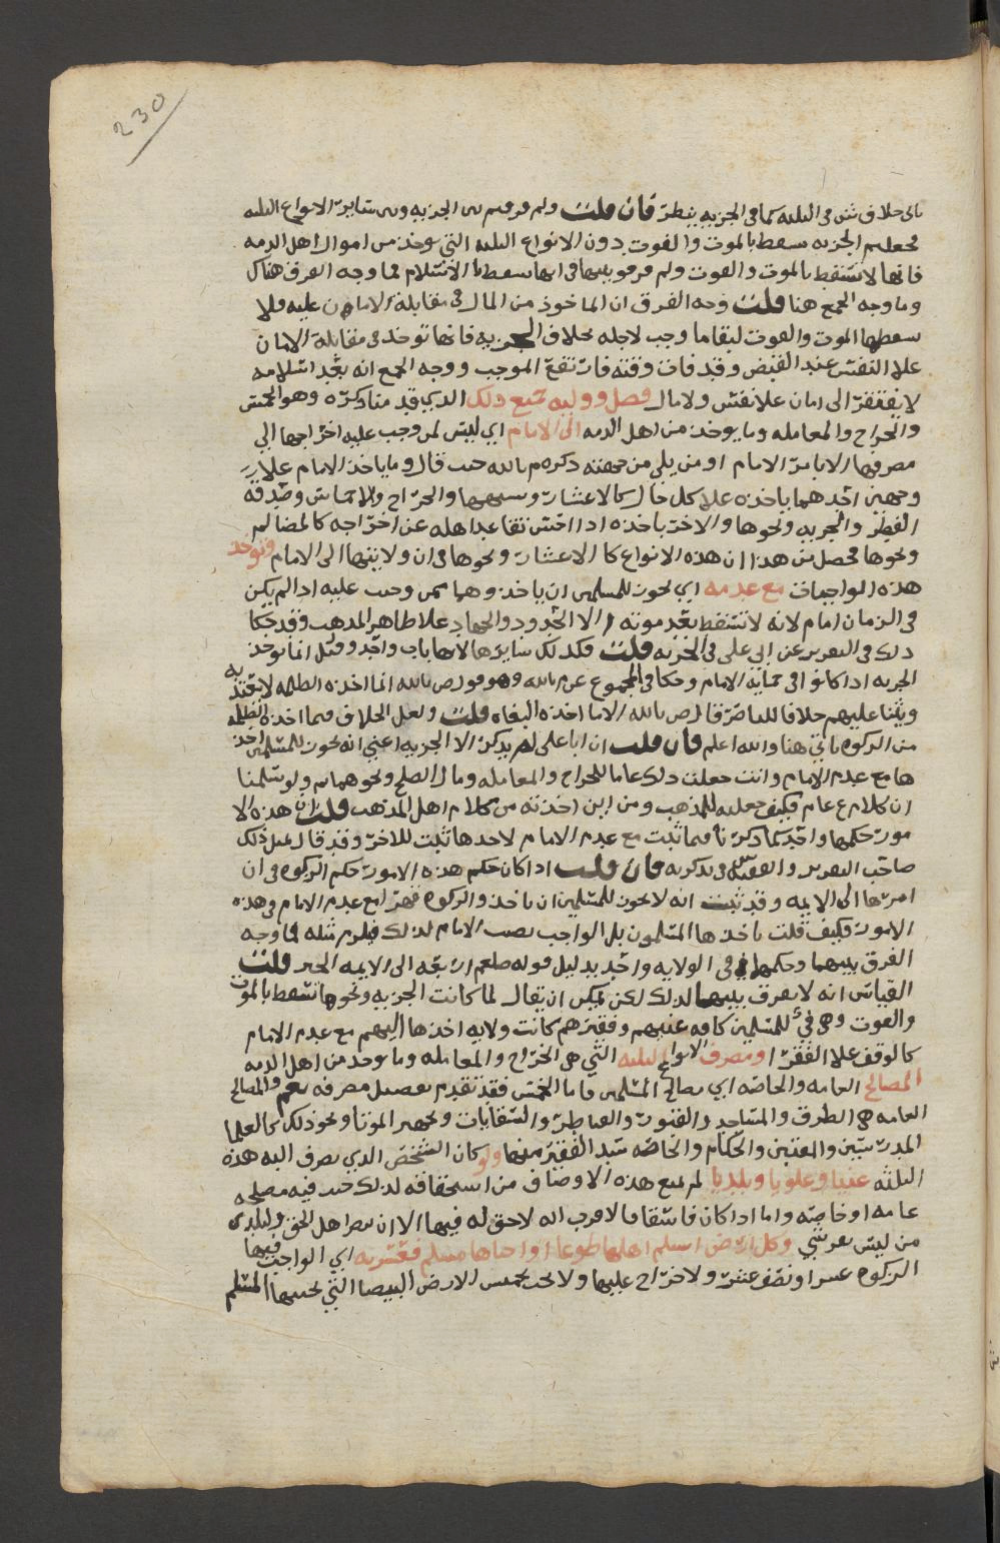 230
فان قلت ولم فرقتم بين الجزيه وبين سائر الانواع الثلثه
فجعلتم الجزيه تسقط بالموت والفوت دون الانواع الثلثه التي توخذ من اموال اهل الذمه
فانها لا تسقط بالموت والفوت ولم فرقو بينها في انها تسقط بالاسلام فما وجه الفرق هناك
وما وجه الجمع هنا قلت وجه الفرق ان الماخوذ من المال في مقابلة الامان عليه فلا
يسقطها الموت والفوت لبقا ما وجب لاجله بخلاف الجزيه فانها توخذ في مقابلة الامان
علا النفس عند القبض وقد فات وقته فارتفع الموجب ووجه الجمع انه بعد اسلامه
لا يفتقر الى امان علا نفس ولا مال فصل وولايه جميع ذلك الذي قد منا ذكره وهو الخمس
والخراج والمعامله وما يوخذ من اهل الذمه الى الامام اي ليس لمن وجب عليه اخراجها الى
مصرفها الا بامر الامام او من يلي من جهته ذكره م بالله حيث قال وما ياخذ الامام علا
وجهين احدهما ياخذه علا كل حال كالاعشار والخراج والاخماس وصدقه
الفطر والجزيه ونحوها والاخر ياخذه اذا احس تقاعد اهله عن اخراجه كالمظالم
ونحوها فحصل من هذا ان هذه الانواع كالاعشار ونحوها في ان ولايتها الى الامام وتوخذ
هذه الواجبات مع عدمه اي يجوز للمسلمين ان ياخذوها ممن وجبت عليه اذا لم يكن
في الزمان امام لانه لا تسقط بعد موته الا الحدود والجهاد علا ظاهر المذهب وقد حكا
ذلك في التقرير عن ابي علي في الجزيه قلت فكذلك سايرها لانها باب واحد وقيل انما توخذ
الجزيه اذا كانوا في حماية الامام وحكا في المجموع عن م بالله وهو قول ص بالله انما اخذه الظلمه لا يعتد به
ويثنا عليهم خلافا للناصر قال ص بالله الا ما اخذه البغاه قلت ولعل الخلاف فيما اخذه الظلمه
من الزكوه ياتي هنا والله اعلم فان قلت ان ابا علي لم يذكر الا الجزيه اعني انه يجوز للمسلمين اخذ
ها مع عدم الامام وانت جعلت ذلك عاما للخراج والمعامله ومال الصلح ونحوها ولو سلمنا
ان كلامه عام فكيف جعلته للمذهب ومن اين اخذته من كلام اهل المذهب قلت ان هذه الا
مور حكمها واحد كما ذكرنا فما ثبت مع عدم الامام لاحدها ثبت للاخر وقد قال بمثل ذلك
صاحب التقرير والفقيه س في تذكرته فان قلت اذا كان حكم هذه الامور حكم الزكوه في ان
امرها الى الايمه وقد ثبت انه لا يجوز للمسلمين ان ياخذوا الزكوه قهرا مع عدم الامام وهذه
الامور فكيف قلت ياخذها المسلمون بل الواجب نصب الامام لذلك فيلزم مثله فما وجه
الفرق بينهما وحكمهما في الولايه واحد بدليل قوله صلعم اربعه الى الايمه الخبر قلت
القياس انه لا يفرق بينهما لذلك لكن يمكن ان يقال لما كانت الجزيه ونحوها تسقط بالموت
والفوت وهي فيء للمسلمين كافه غنيهم وفقيرهم كانت ولايه اخذها اليهم مع عدم الامام
كالوقف علا الفقرا ومصرف الانواع الثلثه التي هي الخراج والمعامله وما يوخذ من اهل الذمه
المصالح العامه والخاصه اي مصالح المسلمين فاما الخمس فقد تقدم تفصيل مصرفه نعم والمصالح
العامه هي الطرق والمساجد والقبور والقناطر والسقايات وتجهيز الموتا ونحو ذلك كالعلما
المدرسين والمفتين والحكام والخاصه سد الفقير منها ولو كان الشخص الذي يصرف اليه هذه
الثلثه غنيا وعلويا وبلديا لم تمنع هذه الاوصاف من استحقاقه لذلك حيث فيه مصلحه
عامه او خاصه واما اذا كان فاسقا فالاقرب انه لا حق له فيها الا ان ينصر اهل الحق والبلدي
من ليس بقرشي وكل ارض اسلم اهلها طوعا او احياها مسلم فعشريه اي الواجب فيها
الزكوه عشرا او نصف عشر ولا خراج عليها ولا يجب بخمس الارض البيضا التي يحييها المسلم